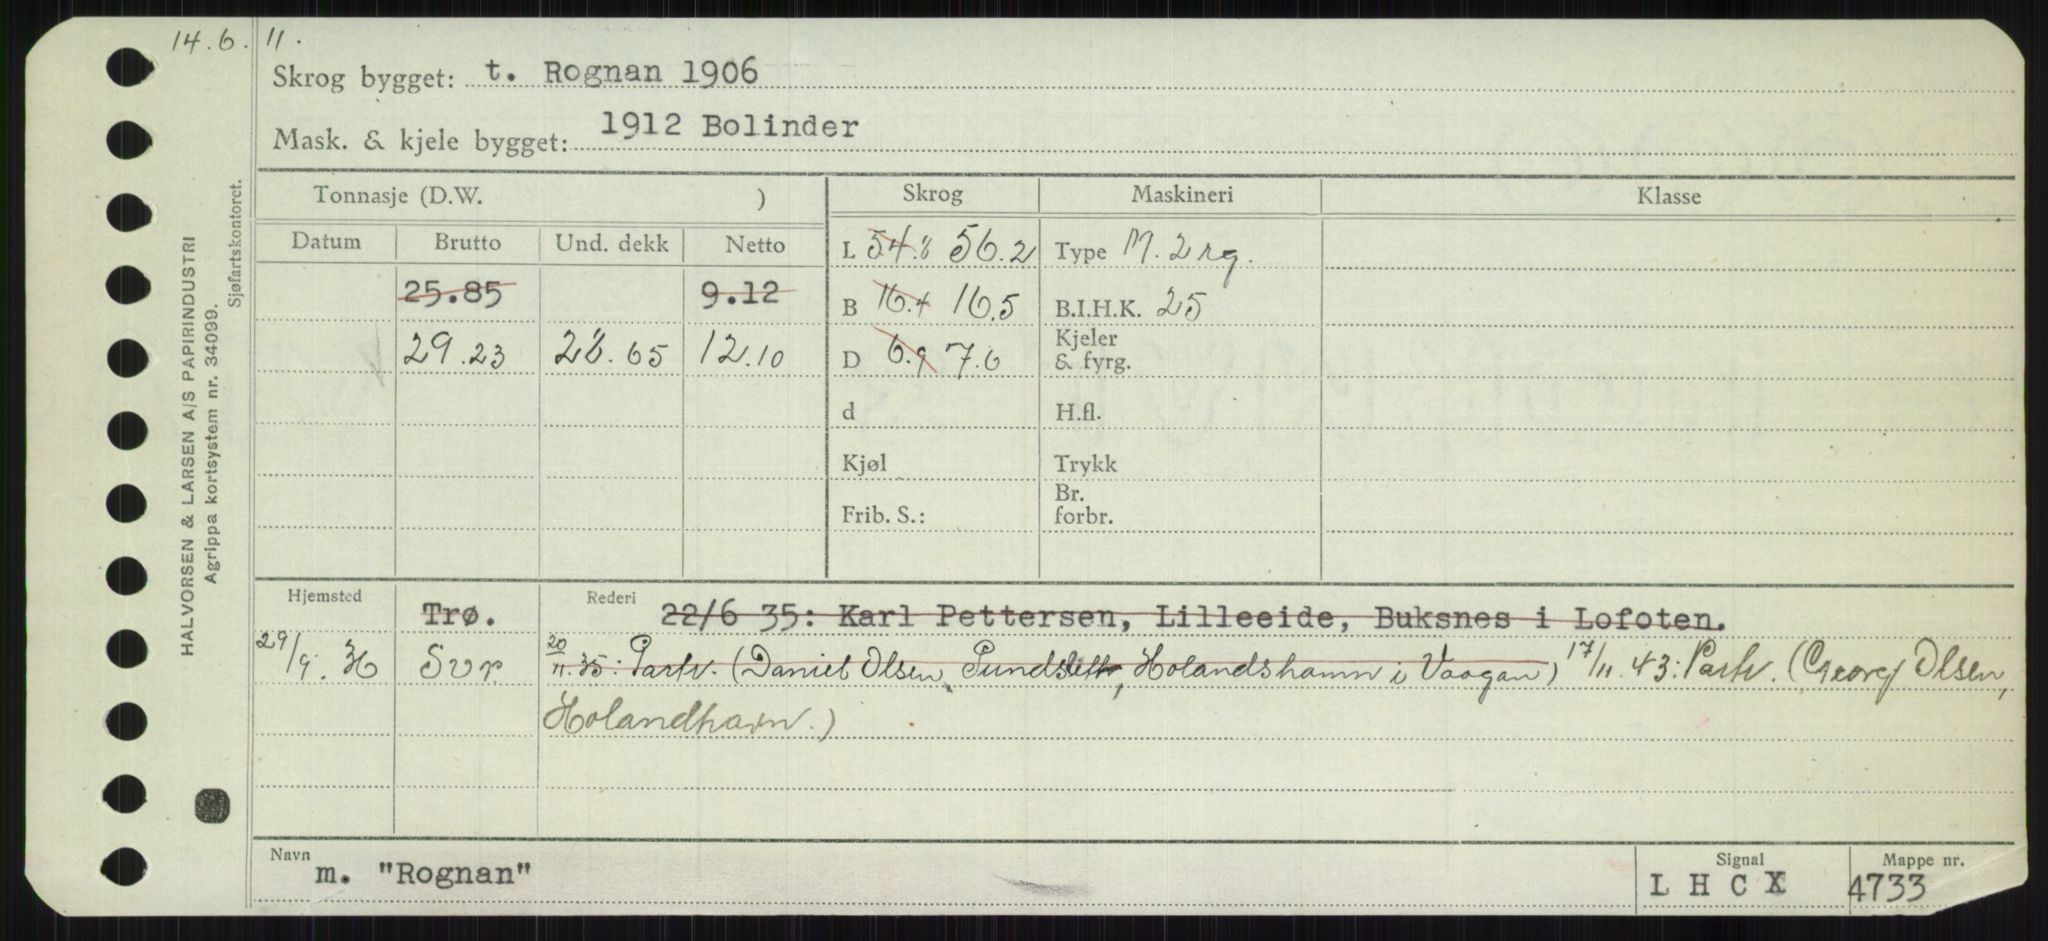 14.6.11.
Skrog bygget: t. Rognan 1906
Mask. & kjele bygget: 1912 Bolinder
HALVORSEN & LARSEN A/S PAPIRINDUSTRI
Agrippa kortsystem nr. 34099.
Sjøfartskontoret.
Tonnasje (D.W. ) Skrog Maskineri Klasse
Datum Brutto Und. dekk Netto
L 54.8 56.2 Type M. 2 rg.
25.85 9.12 B 16.4 16.5 B.I.H.K. 25
29.23 28.65 12.10 D 6.9 7.6 Kjeler & fyrg.
d H.fl.
Kjøl Trykk
Frib. S.: Br. forbr.
Hjemsted Rederi
Trø. 22/6 35: Karl Pettersen, Lilleeide, Buksnes i Lofoten.
29/9. H Svr 20/11.35: Partr. (Daniel Olsen, Pundslett, Holandshamn i Vaagan) 17/11.43: Partr. (Georg Olsen,
Holandhavn.)
Navn m. "Rognan" Signal L H C X Mappe nr. 4733